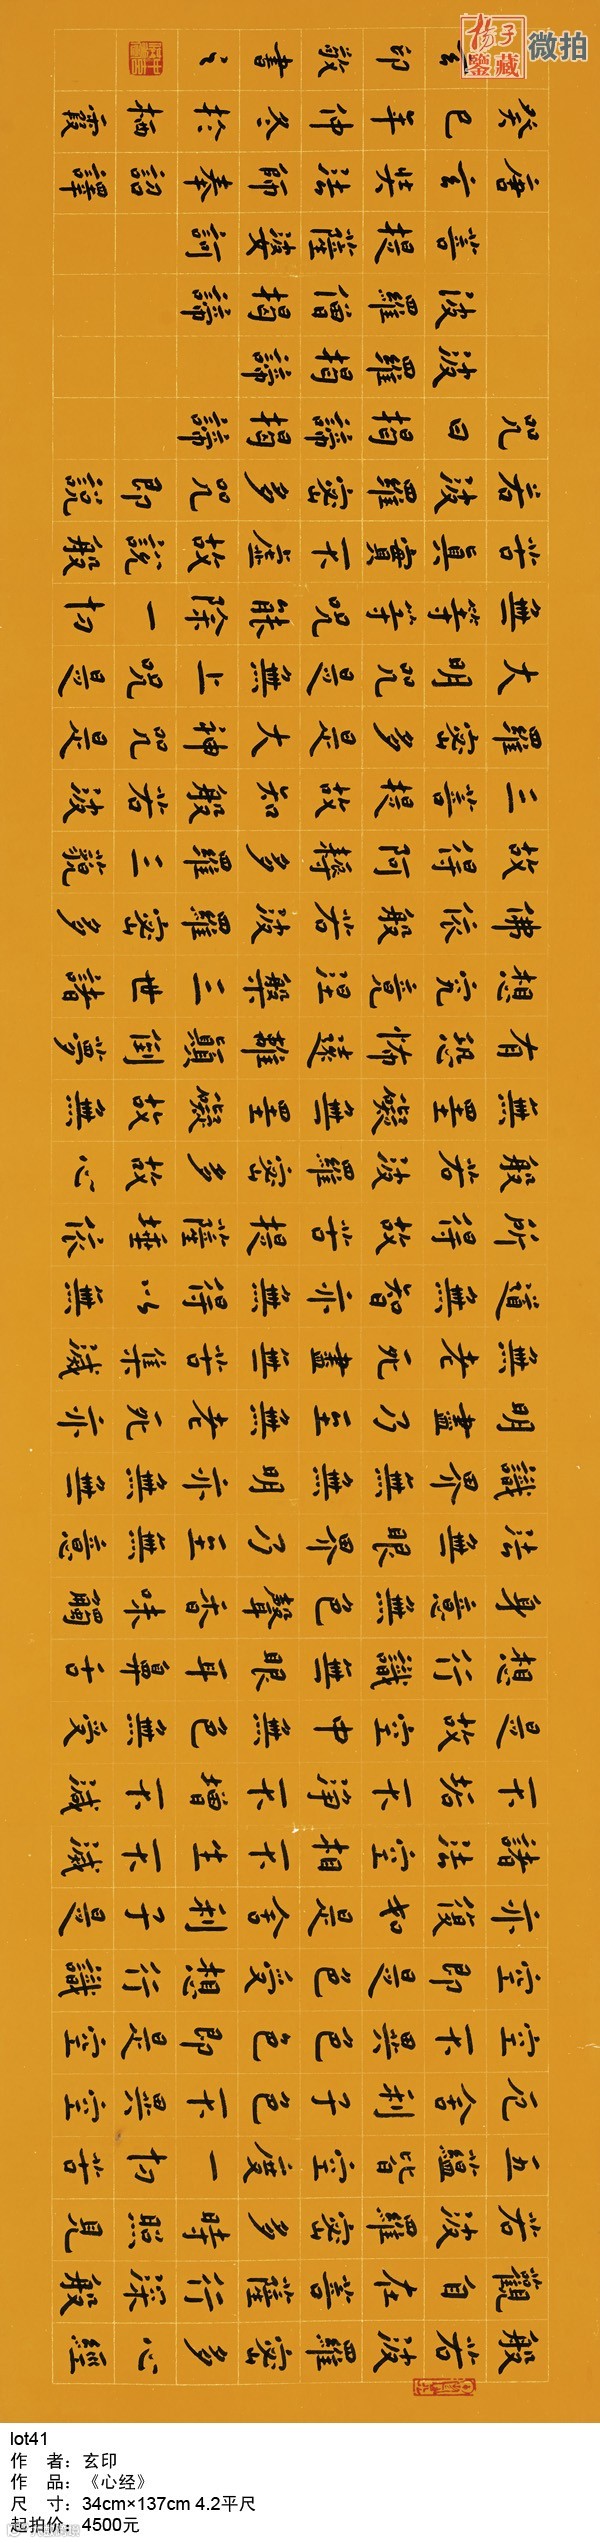 般若波羅密多心經
觀自在菩薩行深般
若波羅密多時照見
五蘊皆空度一切苦
厄舍利子色不異空
空不異色色即是空
空即是色受想行識
亦復如是舍利子是
諸法空相不生不滅
不垢不淨不增不減
是故空中無色無受
想行識無眼耳鼻舌
身意無色聲香味觸
法無眼界乃至無意
識界無無明亦無無
明盡乃至無老死亦
無老死盡無苦集滅
道無智亦無得以無
所得故菩提薩埵依
般若波羅密多故心
無罣礙無罣礙故無
有恐怖遠離顛倒夢
想究竟涅槃三世諸
佛依般若波羅密多
故得阿耨多羅三藐
三菩提故知般若波
羅密多是大神咒是
大明咒是無上咒是
無等等咒能除一切
苦真實不虛故說般
若波羅密多咒即說
咒曰揭諦揭諦
波羅揭諦
波羅僧揭諦
菩提薩婆訶
唐玄奘法師奉詔譯
癸巳年仲冬於栖霞
玄印敬書
扬子鑒藏 微拍
lot41
作 者：玄印
作 品：《心经》
尺 寸：34cm×137cm 4.2平尺
起拍价：4500元